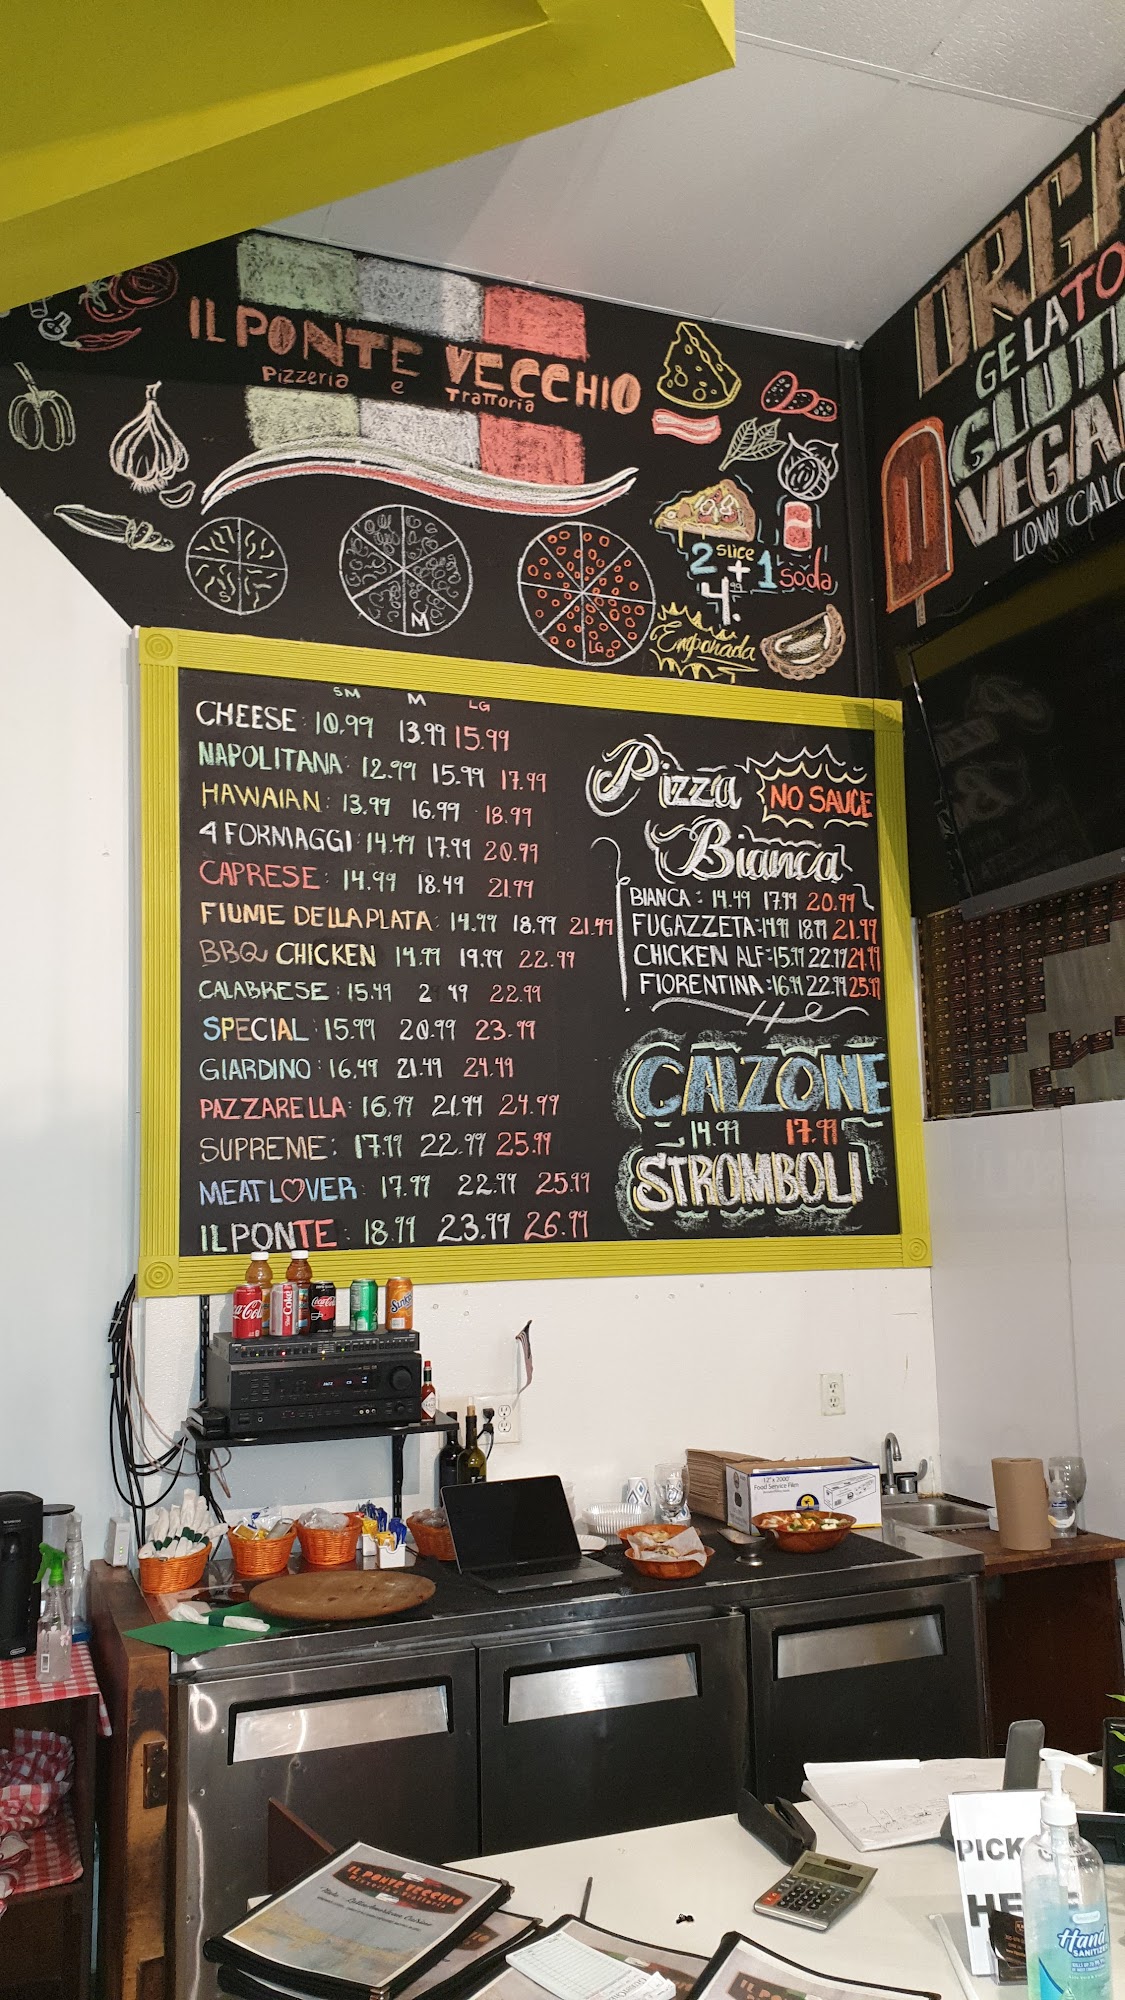 IL PONTE VECCHIO
Pizzeria e Trattoria
M
LG
2 slice + 1 soda
4.99
Empanada
SM M LG
CHEESE: 10.99 13.99 15.99
NAPOLITANA: 12.99 15.99 17.99
HAWAIAN: 13.99 16.99 18.99
4 FORMAGGI: 14.99 17.99 20.99
CAPRESE: 14.99 18.49 21.99
FIUME DELLA PLATA: 14.99 18.99 21.99
BBQ CHICKEN 14.99 19.99 22.99
CALABRESE: 15.49 2 49 22.99
SPECIAL: 15.99 20.99 23.99
GIARDINO: 16.49 21.49 24.49
PAZZARELLA: 16.99 21.99 24.99
SUPREME: 17.99 22.99 25.99
MEAT LOVER: 17.99 22.99 25.99
IL PONTE: 18.99 23.99 26.99
Pizza
NO SAUCE
Bianca
BIANCA: 14.49 17.99 20.99
FUGAZZETA: 14.99 18.99 21.99
CHICKEN ALF: 15.99 22.99 24.99
FIORENTINA: 16.99 22.99 25.99
CALZONE
14.99 17.99
STROMBOLI
ORGA
GELATO
GLUT
VEGA
LOW CALO
Coca-Cola
Diet Coke
Coca-Cola
Sunkist
12" x 2000'
Food Service Film
IL PONTE VECCHIO
Pizzeria e Trattoria
Italo - Latin American Cuisine
IL PONTE
PICK
HE
Hand
SANITIZER